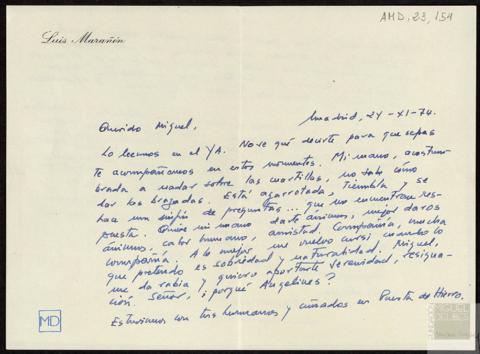 AMD, 23, 154
Luis Marañón
Madrid, 24-XI-74.
Querido Miguel,
Lo leemos en el YA. No se qué decirte para que sepas
te acompañamos en estos momentos. Mi mano, acostum-
brada a nadar sobre las cuartillas, no sabe cómo
dar las brazadas. Está agarrotada, tiembla y se
hace una sinfín de preguntas... que no encuentran res-
puesta. Quiere mi mano darte ánimos, mejor daros
ánimos, calor humano, amistad. Compañía, mucha
compañía. A lo mejor me vuelvo cursi cuando lo
que pretendo es sobriedad y naturalidad. Miguel,
me da rabia y quiero aportarte serenidad, resigna-
ción. Señor, ¿porqué Angelines?
Estuvimos con tus hermanos y cuñados en Puerta de Hierro.
MD
MIGUEL
DELIBES